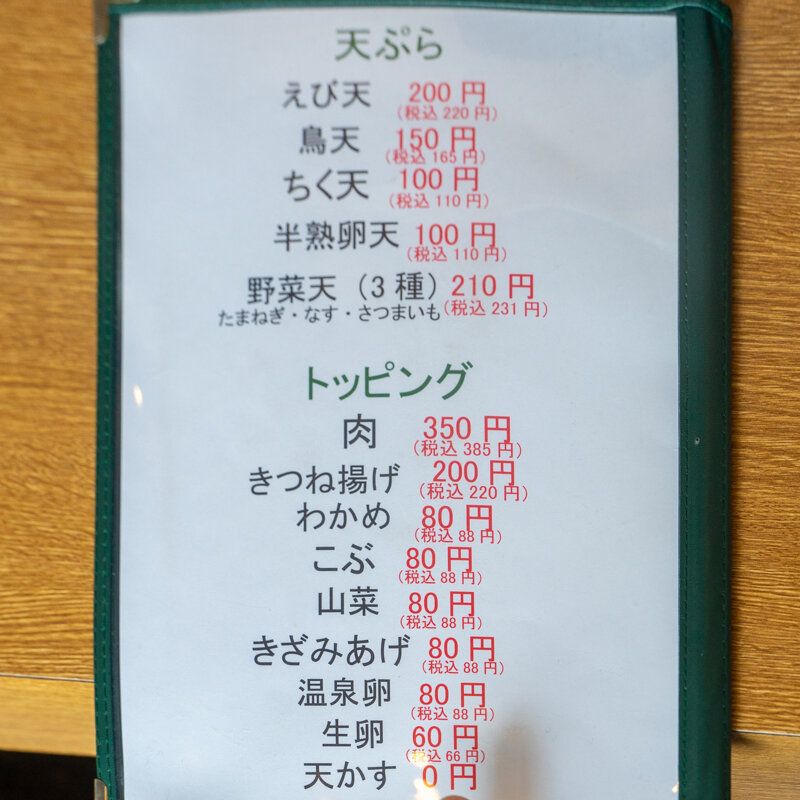 天ぷら
えび天 200円
(税込220円)
鳥天 150円
(税込165円)
ちく天 100円
(税込110円)
半熟卵天 100円
(税込110円)
野菜天(3種) 210円
たまねぎ・なす・さつまいも (税込231円)
トッピング
肉 350円
(税込385円)
きつね揚げ 200円
(税込220円)
わかめ 80円
(税込88円)
こぶ 80円
(税込88円)
山菜 80円
(税込88円)
きざみあげ 80円
(税込88円)
温泉卵 80円
(税込88円)
生卵 60円
(税込66円)
天かす 0円